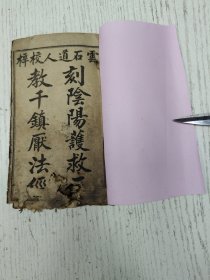 雲石道人校梓
刻陰陽護救一
教千鎮厭法經